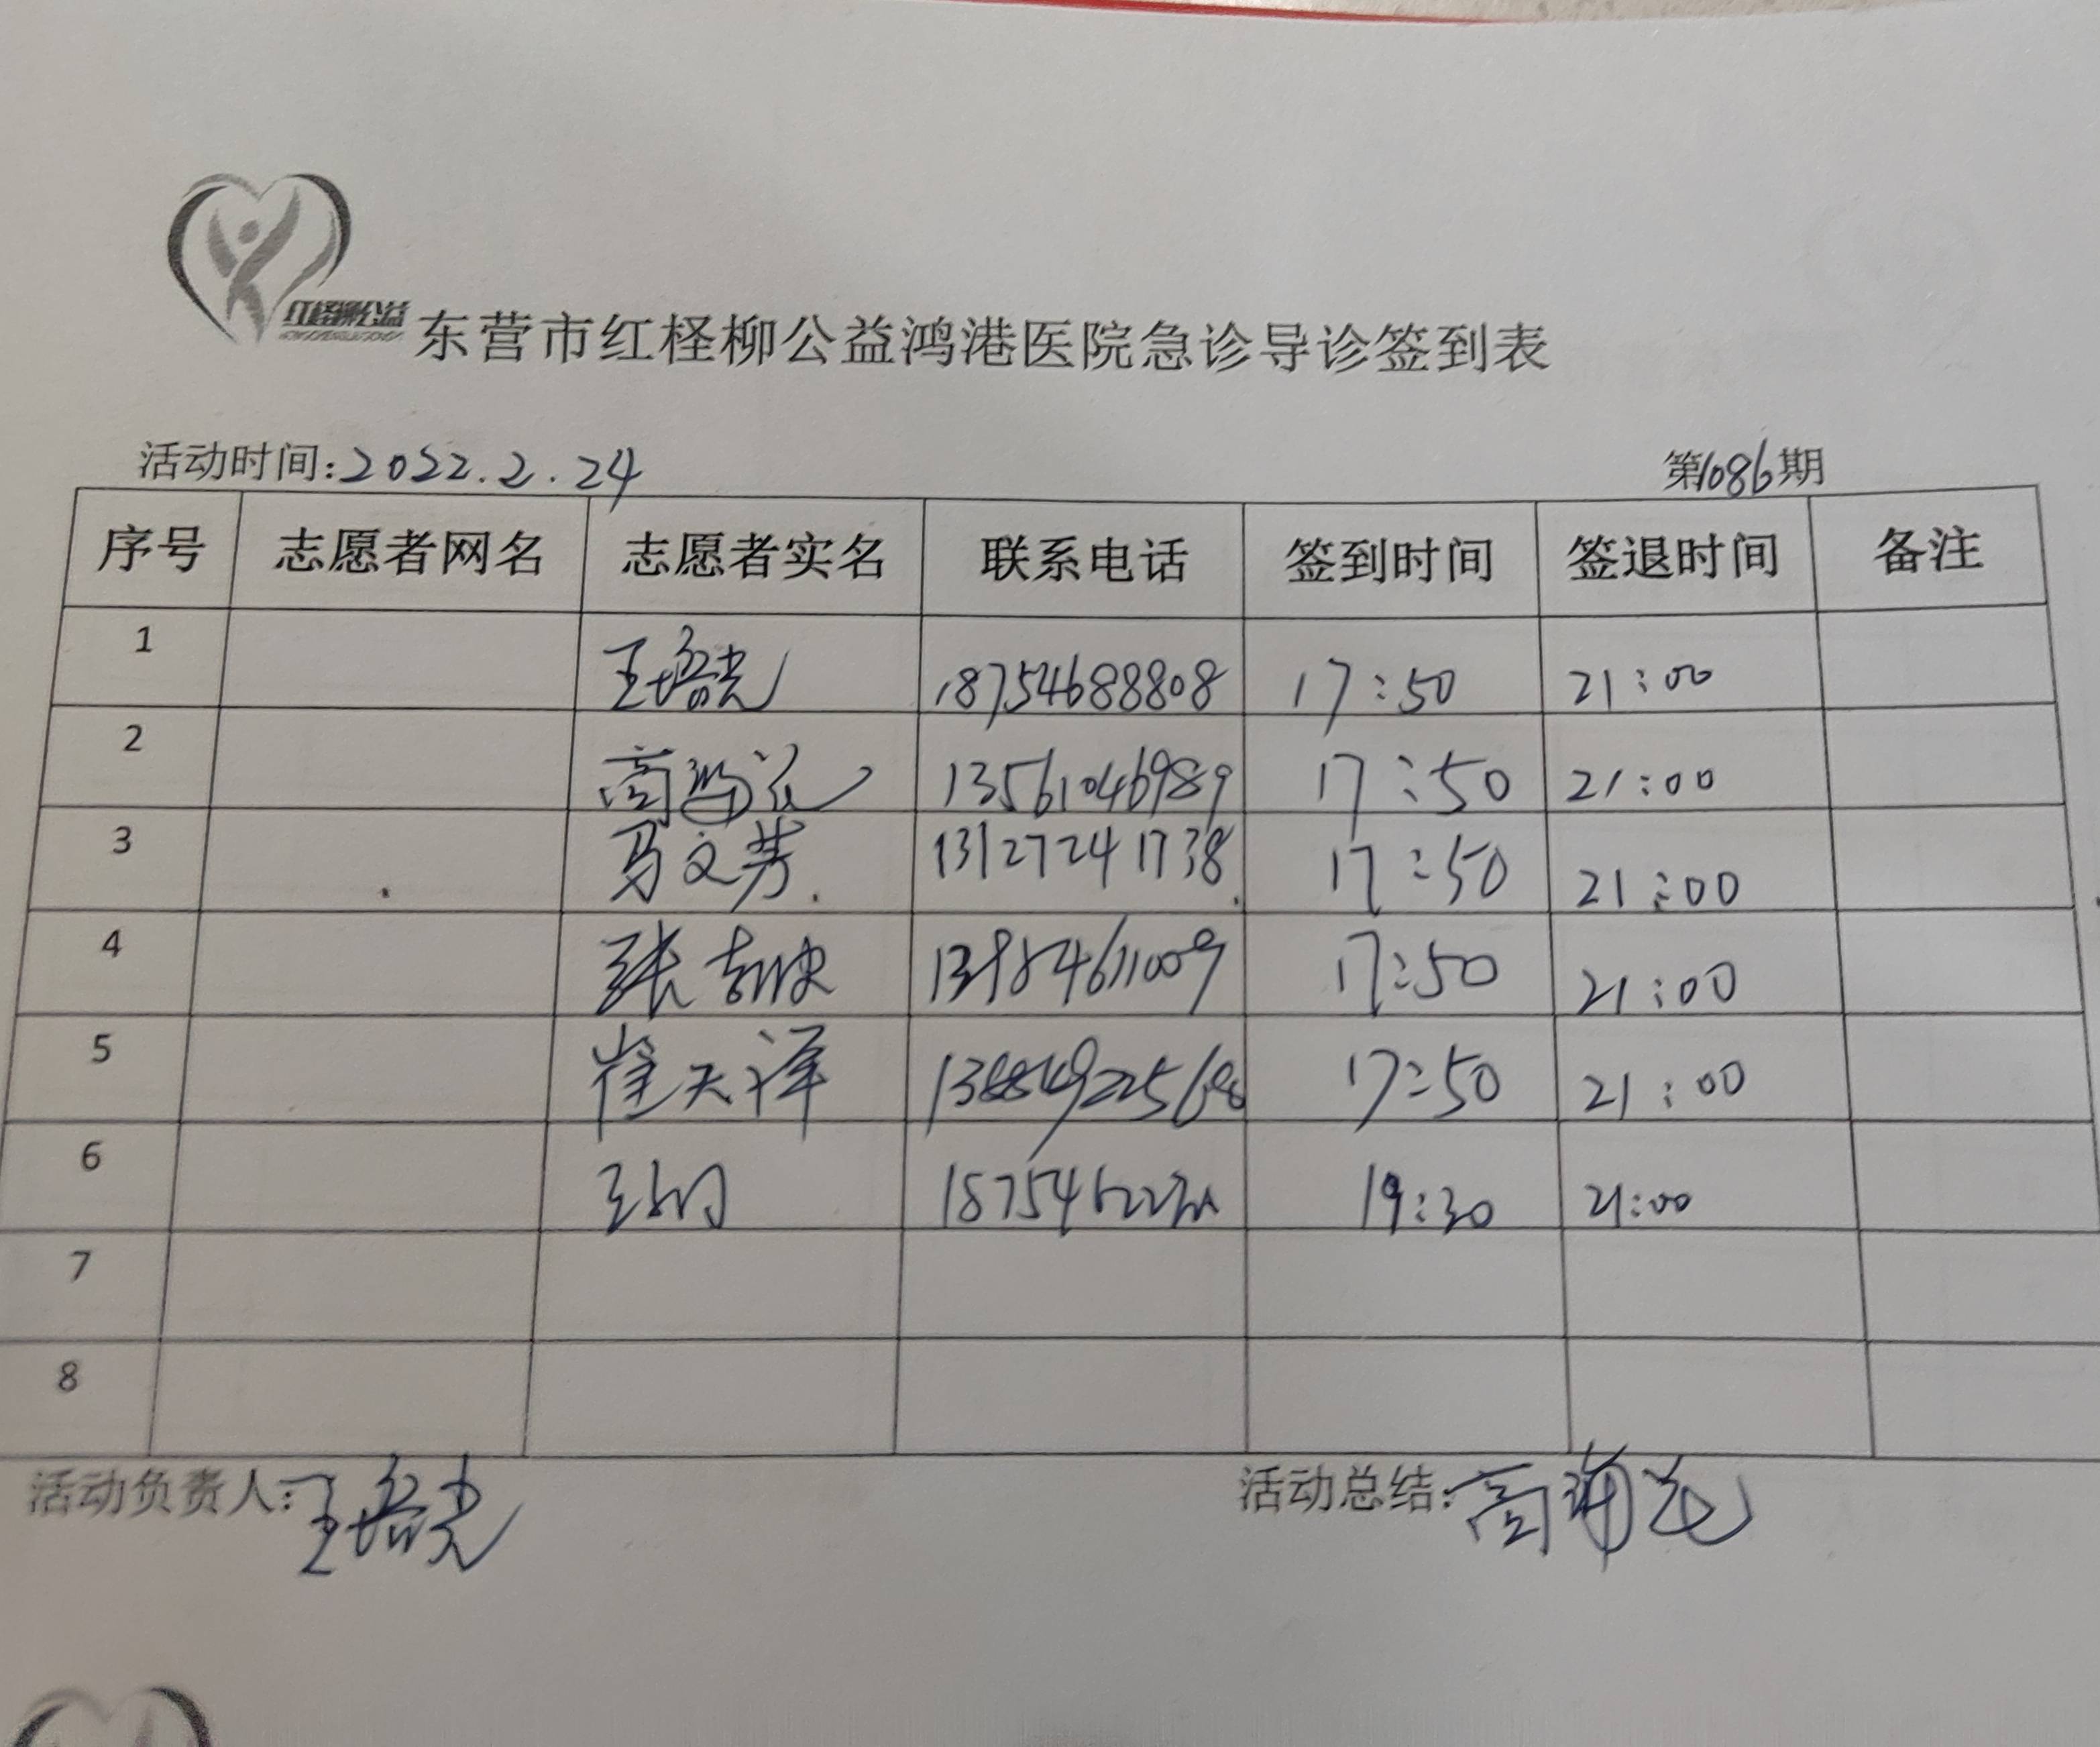 红柽柳公益
东营市红柽柳公益鸿港医院急诊导诊签到表
活动时间:2022.2.24 第1086期
序号 志愿者网名 志愿者实名 联系电话 签到时间 签退时间 备注
1 王培光 18754688808 17:50 21:00
2 13561046989 17:50 21:00
3 马文芳 13127241738 17:50 21:00
4 张 17:50 21:00
5 崔天泽 17:50 21:00
6 19:30 21:00
7
8
活动负责人:王培光 活动总结: